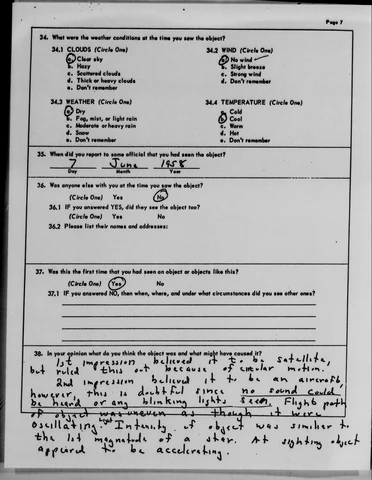 Page 7
34. What were the weather conditions at the time you saw the object?
34.1 CLOUDS (Circle One) 34.2 WIND (Circle One)
a. Clear sky a. No wind
b. Hazy b. Slight breeze
c. Scattered clouds c. Strong wind
d. Thick or heavy clouds d. Don't remember
e. Don't remember
34.3 WEATHER (Circle One) 34.4 TEMPERATURE (Circle One)
a. Dry a. Cold
b. Fog, mist, or light rain b. Cool
c. Moderate or heavy rain c. Warm
d. Snow d. Hot
e. Don't remember e. Don't remember
35. When did you report to some official that you had seen the object?
7 June 1958
Day Month Year
36. Was anyone else with you at the time you saw the object?
(Circle One) Yes No
36.1 IF you answered YES, did they see the object too?
(Circle One) Yes No
36.2 Please list their names and addresses:
37. Was this the first time that you had seen an object or objects like this?
(Circle One) Yes No
37.1 IF you answered NO, then when, where, and under what circumstances did you see other ones?
38. In your opinion what do you think the object was and what might have caused it?
1st impression believed it to be satellite,
but ruled this out because of circular motion.
2nd impression believed it to be an aircraft,
however, this is doubtful since no sound could
be heard or any blinking lights seen. Flight path
of object was uneven as though it were
oscillating. Light Intensity of object was similar to
the 1st magnitude of a star. At sighting object
appeared to be accelerating.